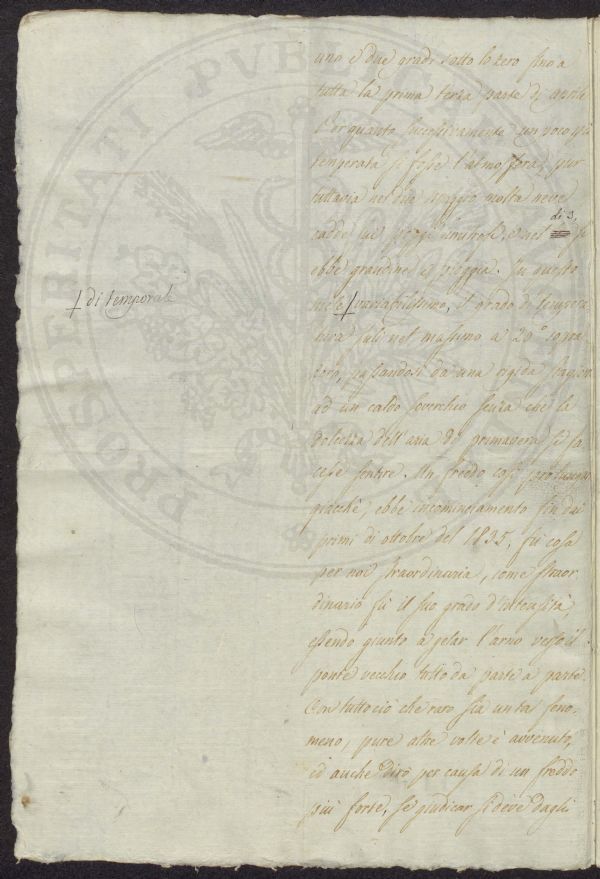 uno e due gradi sotto lo zero fino a
tutta la prima terza parte di aprile
Per quanto un poco più
temperata si fosse l'atmosfera, pur
tuttavia nel dì maggio molta neve
cadde ne' poggi e nel di 3, si
ebbe grandine e pioggia. In questo
mese variabilissimo, il grado di tempera
tura salì nel massimo a 20° sopra
zero, passandosi da una rigida stagion
ad un caldo soverchio senza che la
dolcezza dell'aria di primavera si fa
cesse sentire. Un freddo così prolungato
giacchè, ebbe incominciamento fin dai
primi di ottobre del 1835, fu cosa
per noi straordinaria, come straor
dinario fu il suo grado d'intensità,
essendo giunto a gelar l'arno verso il
ponte vecchio tutto da parte a parte.
Con tutto ciò che raro sia un tal feno=
meno, pure altre volte è avvenuto,
ed anche dirò per causa di un freddo
più forte, se giudicar si deve dagli
† di temporale
PROSPERITATI PVBLICAE